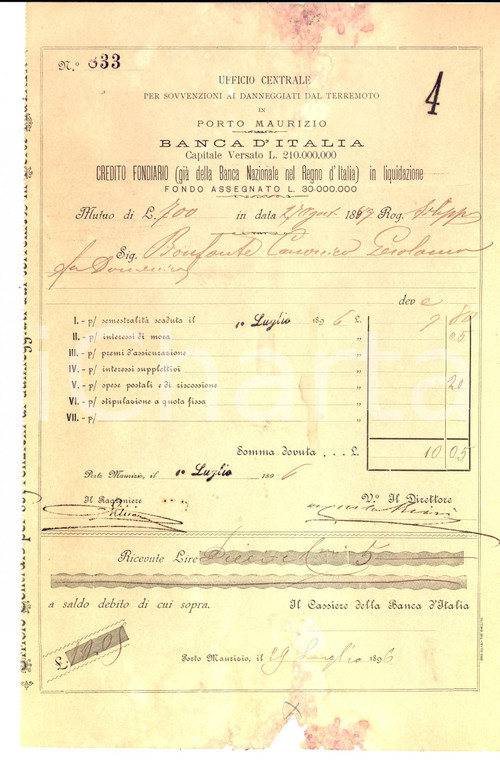 N.º 833
4
UFFICIO CENTRALE
PER SOVVENZIONI AI DANNEGGIATI DAL TERREMOTO
IN
PORTO MAURIZIO
BANCA D'ITALIA
Capitale Versato L. 210.000.000
CREDITO FONDIARIO (già della Banca Nazionale nel Regno d'Italia) in liquidazione
FONDO ASSEGNATO L. 30.000.000
Mutuo di L. 700 in data 27 Agost. 18 Rog.
Sig. Bonfante Canonico Gerolamo
fu Domenico
deve
I. - p/ semestralità scaduta il 1º Luglio 1896 £. 9 80
II. - p/ interessi di mora " 05
III. - p/ premi d'assicurazione "
IV. - p/ interessi suppletivi "
V. - p/ spese postali e di riscossione " 20
VI. - p/ stipulazione a quota fissa "
VII. - p/ "
Somma dovuta . . . £. 10 05
Porto Maurizio, il 1º Luglio 1896
Il Ragioniere
Vº Il Direttore
Ricevute Lire Dieci Cmi 5
a saldo debito di cui sopra.
Il Cassiere della Banca d'Italia
£. 10.05
Porto Maurizio, il 29 Luglio 1896